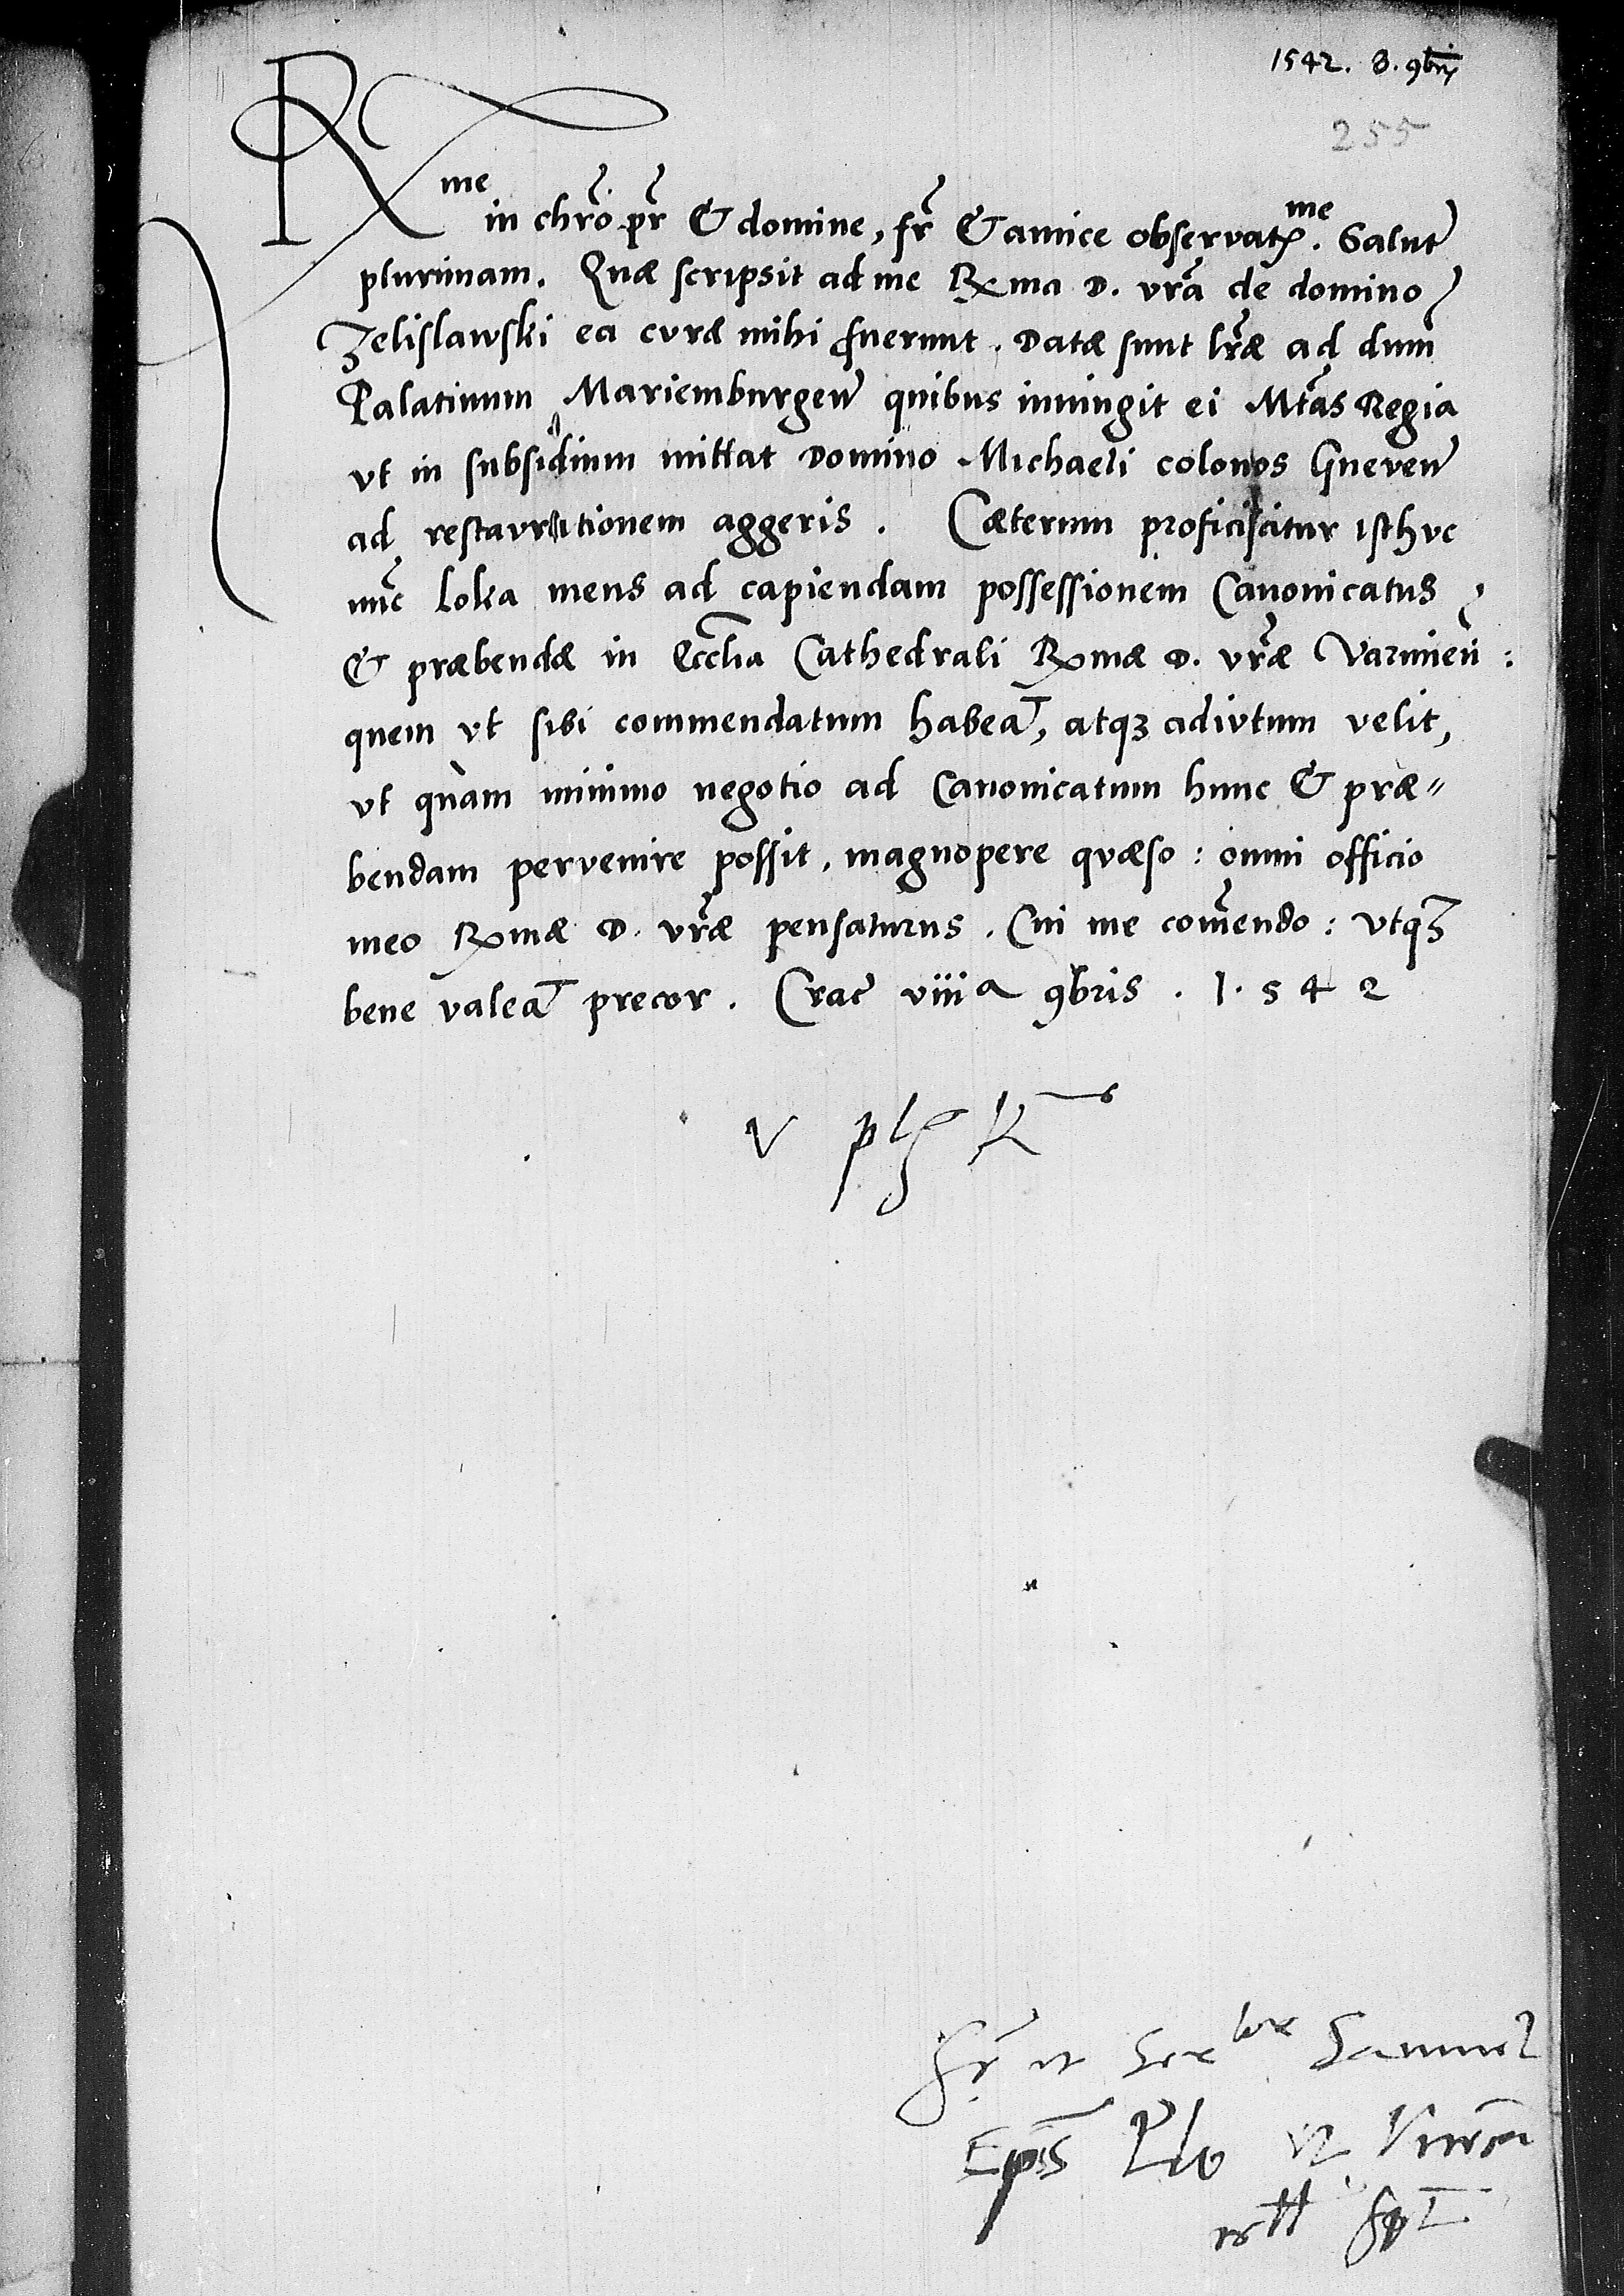 1542. 8. 9bris
255
Rme in chro pr̃ & domine, fr̃ & amice observatme. Salut̃
plurimam. Quæ scripsit ad me Rma D. vrã de domino
Zelislawski ea curæ mihi fuerunt. Datæ sunt lr̃æ ad dnum
Palatinum Mariemburgen̄ quibus iniungit ei Mtãs Regia
vt in subsidium mittat Domino Michaeli colonos Gneven̄
ad restaurationem aggeris. Cæterum proficiscitur isthuc
nũc Loka meus ad capiendam possessionem Canonicatus
& præbendæ in Eccl̃ia Cathedrali Rmæ D. vr̃æ Varmien̄:
quem vt sibi commendatum habeat, atq3 adiutum velit,
vt quàm minimo negotio ad Canonicatum hunc & præ=
bendam pervenire possit, magnopere quæso: omni officio
meo Rmæ D. vr̃æ pensaturus. Cui me com̃endo: vtq3
bene valeat precor. Crac̃ viiia 9bris. 1.542
V
Fr̃ et Samuel
Eps̃ Plo et